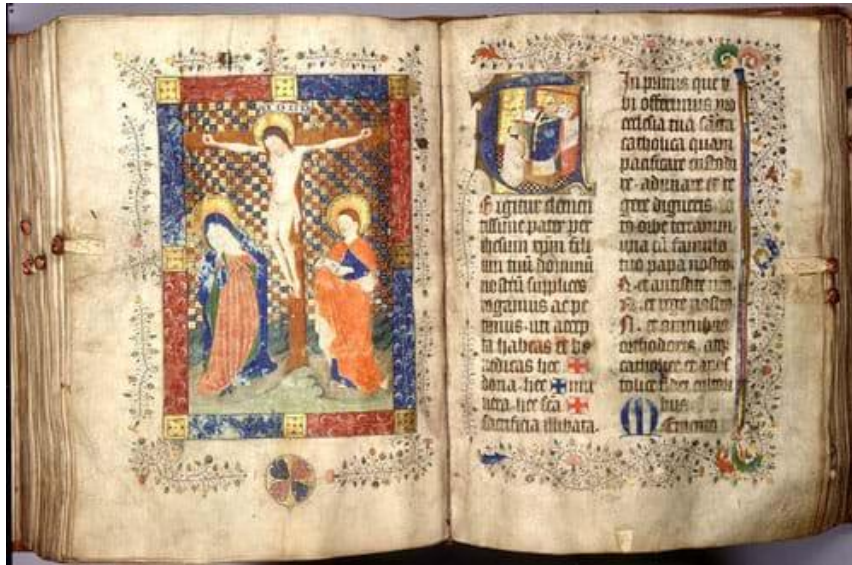 E igitur clemen
tissime pater per
ihesum xpm fili
um tuū dominū
nostrū supplices
rogamus ac pe
timus. uti accep
ta habeas et be
nedicas hec ✠
dona. hec ✠ mu
nera. hec scā ✠
sacrificia illibata.
In primis que t
bi offerimus pro
ecclesia tua sancta
catholica quam
pacificare custodi
re. adunare et re
gere digneris to
to orbe terrarum
una cū famulo
tuo papa nostro
N. et antistite nro
N. et rege nostro
N. et omnibus
orthodoxis. atq
catholice et apos
tolice fidei cultori
bus
Memento